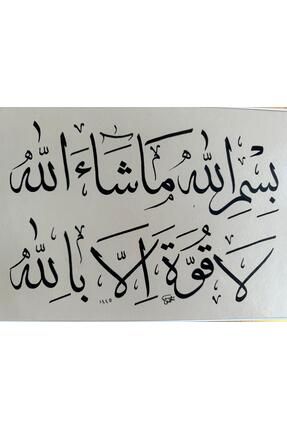 بِسْمِ اللّٰهِ مَا شَاءَ اللّٰهُ
لَا قُوَّةَ اِلَّا بِاللّٰهِ
١٤٤٥